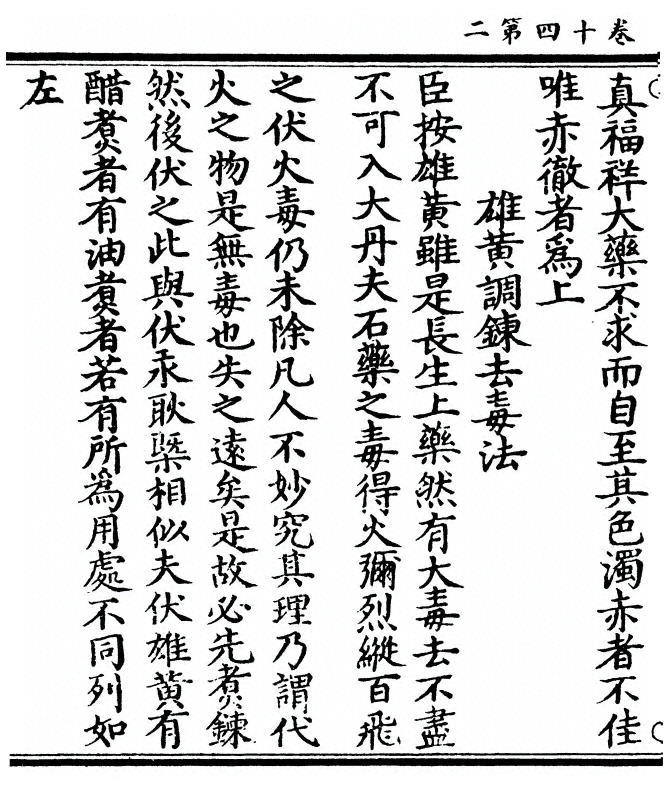 卷十四第二
真福祥大藥不求而自至其色濁赤者不佳
唯赤徹者為上
雄黃調鍊去毒法
臣按雄黃雖是長生上藥然有大毒去不盡
不可入大丹夫石藥之毒得火彌烈縱百飛
之伏火毒仍未除凡人不妙究其理乃謂代
火之物是無毒也失之遠矣是故必先煑鍊
然後伏之此與伏汞耿槩相似夫伏雄黃有
醋煑者有油煑者若有所為用處不同列如
左